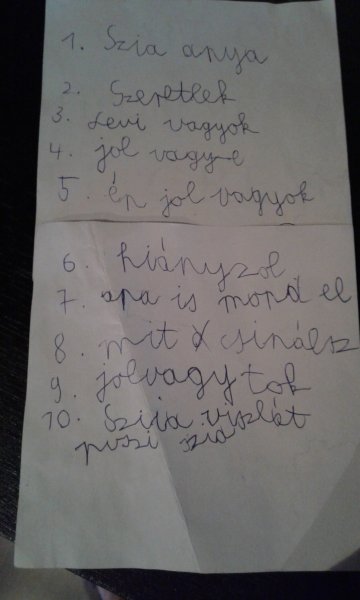 1. Szia anya
2. Szeretlek
3. Levi vagyok
4. jol vagy-e
5. én jol vagyok
6. hiányzol
7. apa is mond el
8. mit csinálsz
9. jolvagytok
10. Sziia viszlát
puszi szia